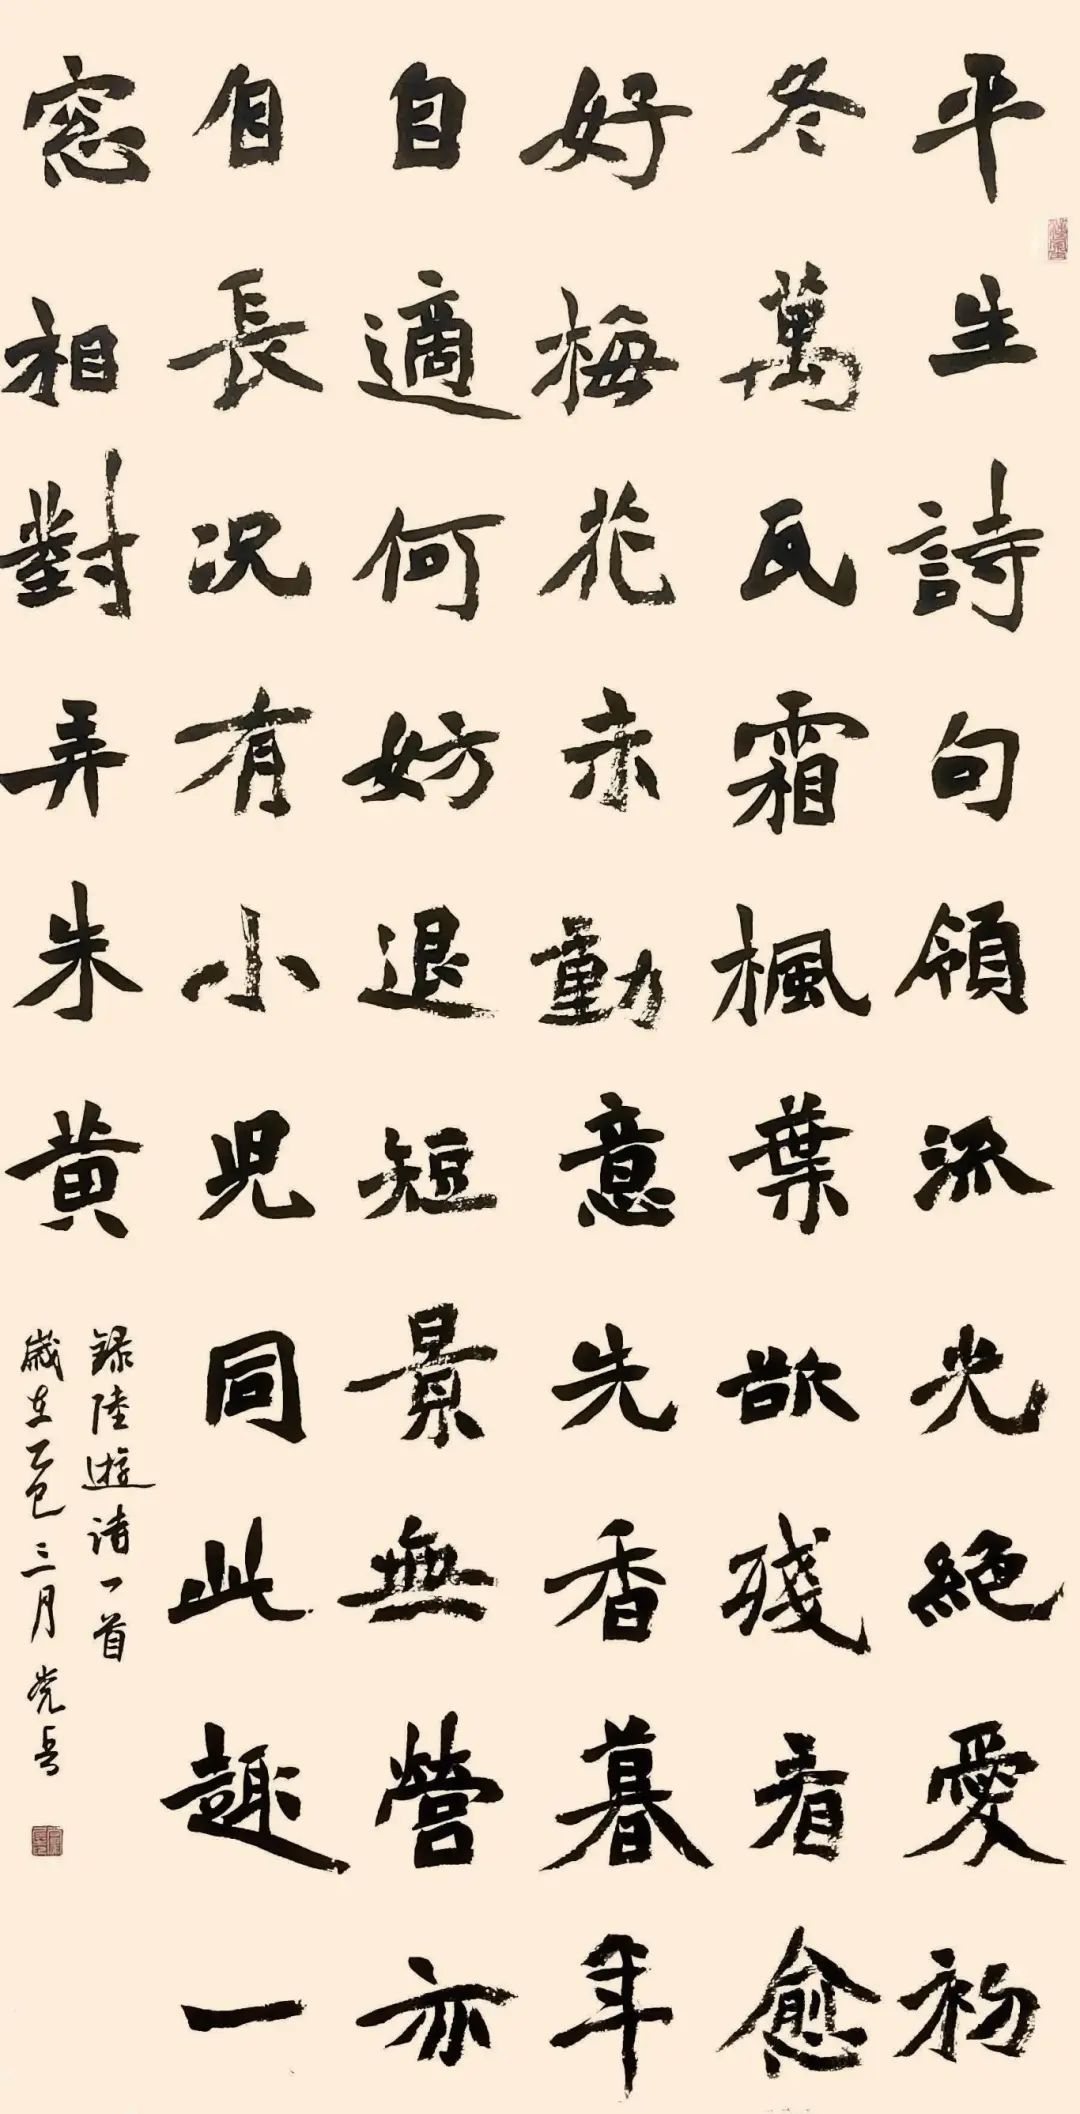 平生詩句領流光絶愛初
冬萬瓦霜楓葉欲殘看愈
好梅花未動意先香暮年
自適何妨退短景無營亦
自長況有小兒同此趣一
窓相對弄朱黄
録陸遊詩一首
歲在乙巳三月